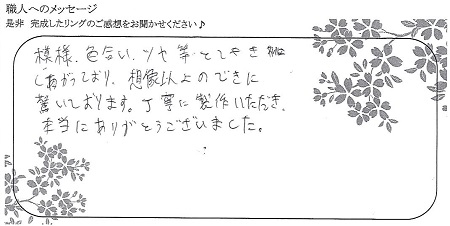 職人へのメッセージ
是非 完成したリングのご感想をお聞かせください♪
模様、色合い、ツヤ等とても
しあがっており、想像以上のできに
驚いております。丁寧に製作いただき、
本当にありがとうございました。